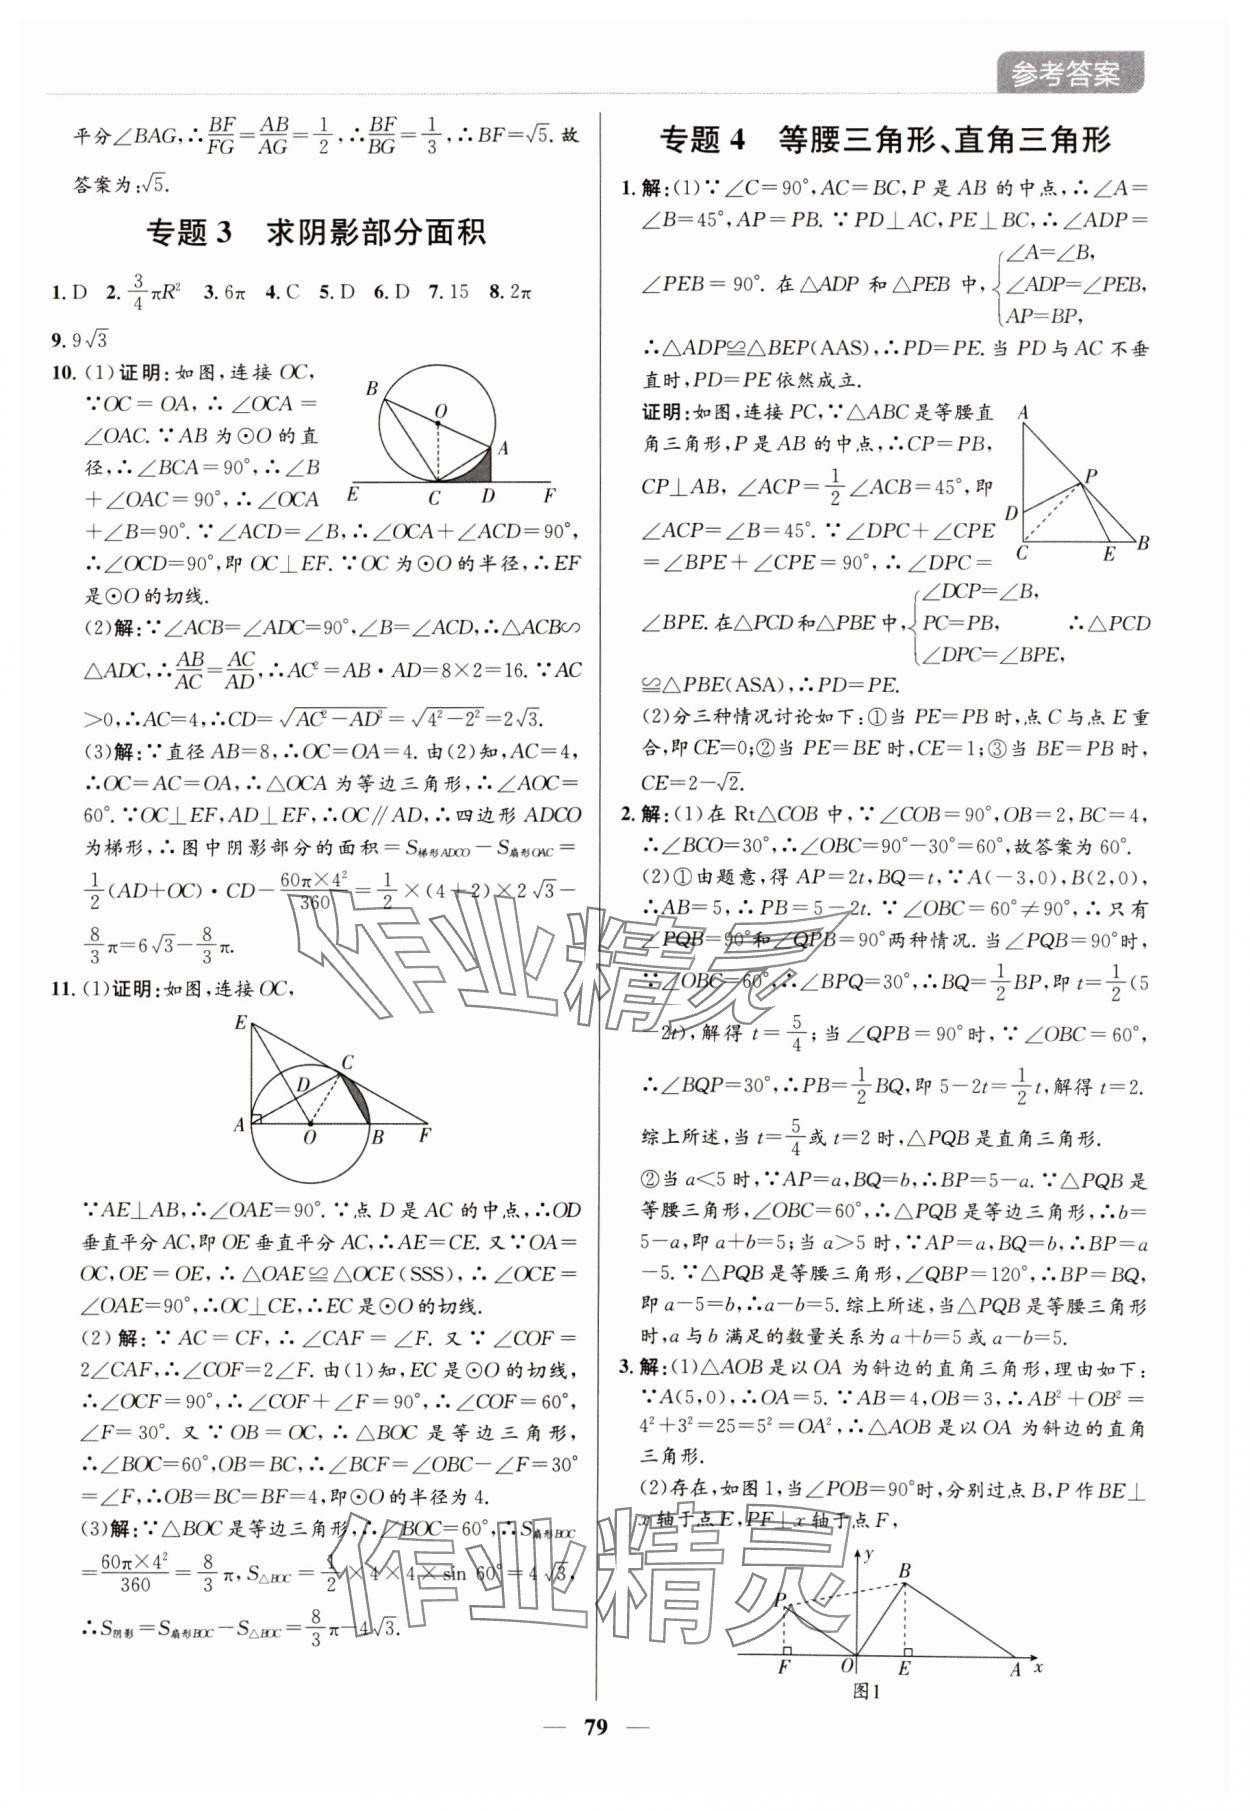 参考答案
平分∠BAG,∴BF/FG=AB/AG=1/2,∴BF/BG=1/3,∴BF=√5.故
答案为:√5.
专题3 求阴影部分面积
1.D 2.3/4πR² 3.6π 4.C 5.D 6.D 7.15 8.2π
9.9√3
10.(1)证明:如图,连接OC,
∵OC=OA,∴∠OCA=
∠OAC.∵AB为⊙O的直
径,∴∠BCA=90°,∴∠B
+∠OAC=90°,∴∠OCA
+∠B=90°.∵∠ACD=∠B,∴∠OCA+∠ACD=90°,
∴∠OCD=90°,即OC⊥EF.∵OC为⊙O的半径,∴EF
是⊙O的切线.
B
O
A
E
C
D
F
(2)解:∵∠ACB=∠ADC=90°,∠B=∠ACD,∴△ACB∽
△ADC,∴AB/AC=AC/AD,∴AC²=AB·AD=8×2=16.∵AC
>0,∴AC=4,∴CD=√(AC²-AD²)=√(4²-2²)=2√3.
(3)解:∵直径AB=8,∴OC=OA=4.由(2)知,AC=4,
∴OC=AC=OA,∴△OCA为等边三角形,∴∠AOC=
60°.∵OC⊥EF,AD⊥EF,∴OC∥AD,∴四边形ADCO
为梯形,∴图中阴影部分的面积=S梯形ADCO-S扇形OAC=
1/2(AD+OC)·CD-60π×4²/360=1/2×(4+2)×2√3-
8/3π=6√3-8/3π.
11.(1)证明:如图,连接OC,
E
D
C
A
O
B
F
∵AE⊥AB,∴∠OAE=90°.∵点D是AC的中点,∴OD
垂直平分AC,即OE垂直平分AC,∴AE=CE.又∵OA=
OC,OE=OE,∴△OAE≌△OCE(SSS),∴∠OCE=
∠OAE=90°,∴OC⊥CE,∴EC是⊙O的切线.
(2)解:∵AC=CF,∴∠CAF=∠F.又∵∠COF=
2∠CAF,∴∠COF=2∠F.由(1)知,EC是⊙O的切线,
∴∠OCF=90°,∴∠COF+∠F=90°,∴∠COF=60°,
∠F=30°.又∵OB=OC,∴△BOC是等边三角形,
∴∠BOC=60°,OB=BC,∴∠BCF=∠OBC-∠F=30°
=∠F,∴OB=BC=BF=4,即⊙O的半径为4.
(3)解:∵△BOC是等边三角形,∴∠BOC=60°,∴S扇形BOC
=60π×4²/360=8/3π,S△BOC=1/2×4×4×sin 60°=4√3,
∴S阴影=S扇形BOC-S△BOC=8/3π-4√3.
专题4 等腰三角形、直角三角形
1.解:(1)∵∠C=90°,AC=BC,P是AB的中点,∴∠A=
∠B=45°,AP=PB.∵PD⊥AC,PE⊥BC,∴∠ADP=
∠PEB=90°.在△ADP和△PEB中,{∠A=∠B,
∠ADP=∠PEB,
AP=BP,
∴△ADP≌△BEP(AAS),∴PD=PE.当PD与AC不垂
直时,PD=PE依然成立.
证明:如图,连接PC,∵△ABC是等腰直
角三角形,P是AB的中点,∴CP=PB,
CP⊥AB,∠ACP=1/2∠ACB=45°,即
∠ACP=∠B=45°.∵∠DPC+∠CPE
=∠BPE+∠CPE=90°,∴∠DPC=
∠BPE.在△PCD和△PBE中,{∠DCP=∠B,
PC=PB,
∠DPC=∠BPE,
∴△PCD
≌△PBE(ASA),∴PD=PE.
A
P
D
C
E
B
(2)分三种情况讨论如下:①当PE=PB时,点C与点E重
合,即CE=0;②当PE=BE时,CE=1;③当BE=PB时,
CE=2-√2.
2.解:(1)在Rt△COB中,∵∠COB=90°,OB=2,BC=4,
∴∠BCO=30°,∴∠OBC=90°-30°=60°,故答案为60°.
(2)①由题意,得AP=2t,BQ=t,∵A(-3,0),B(2,0),
∴AB=5,∴PB=5-2t.∵∠OBC=60°≠90°,∴只有
∠PQB=90°和∠QPB=90°两种情况.当∠PQB=90°时,
∵∠OBC=60°,∴∠BPQ=30°,∴BQ=1/2BP,即t=1/2(5
-2t),解得t=5/4;当∠QPB=90°时,∵∠OBC=60°,
∴∠BQP=30°,∴PB=1/2BQ,即5-2t=1/2t,解得t=2.
综上所述,当t=5/4或t=2时,△PQB是直角三角形.
②当a<5时,∵AP=a,BQ=b,∴BP=5-a.∵△PQB是
等腰三角形,∠OBC=60°,∴△PQB是等边三角形,∴b=
5-a,即a+b=5;当a>5时,∵AP=a,BQ=b,∴BP=a
-5.∵△PQB是等腰三角形,∠QBP=120°,∴BP=BQ,
即a-5=b,∴a-b=5.综上所述,当△PQB是等腰三角形
时,a与b满足的数量关系为a+b=5或a-b=5.
3.解:(1)△AOB是以OA为斜边的直角三角形,理由如下:
∵A(5,0),∴OA=5.∵AB=4,OB=3,∴AB²+OB²=
4²+3²=25=5²=OA²,∴△AOB是以OA为斜边的直角
三角形.
(2)存在,如图1,当∠POB=90°时,分别过点B,P作BE⊥
x轴于点E,PF⊥x轴于点F,
y
B
P
F
O
E
A
x
图1
作业精灵
作业精灵
79